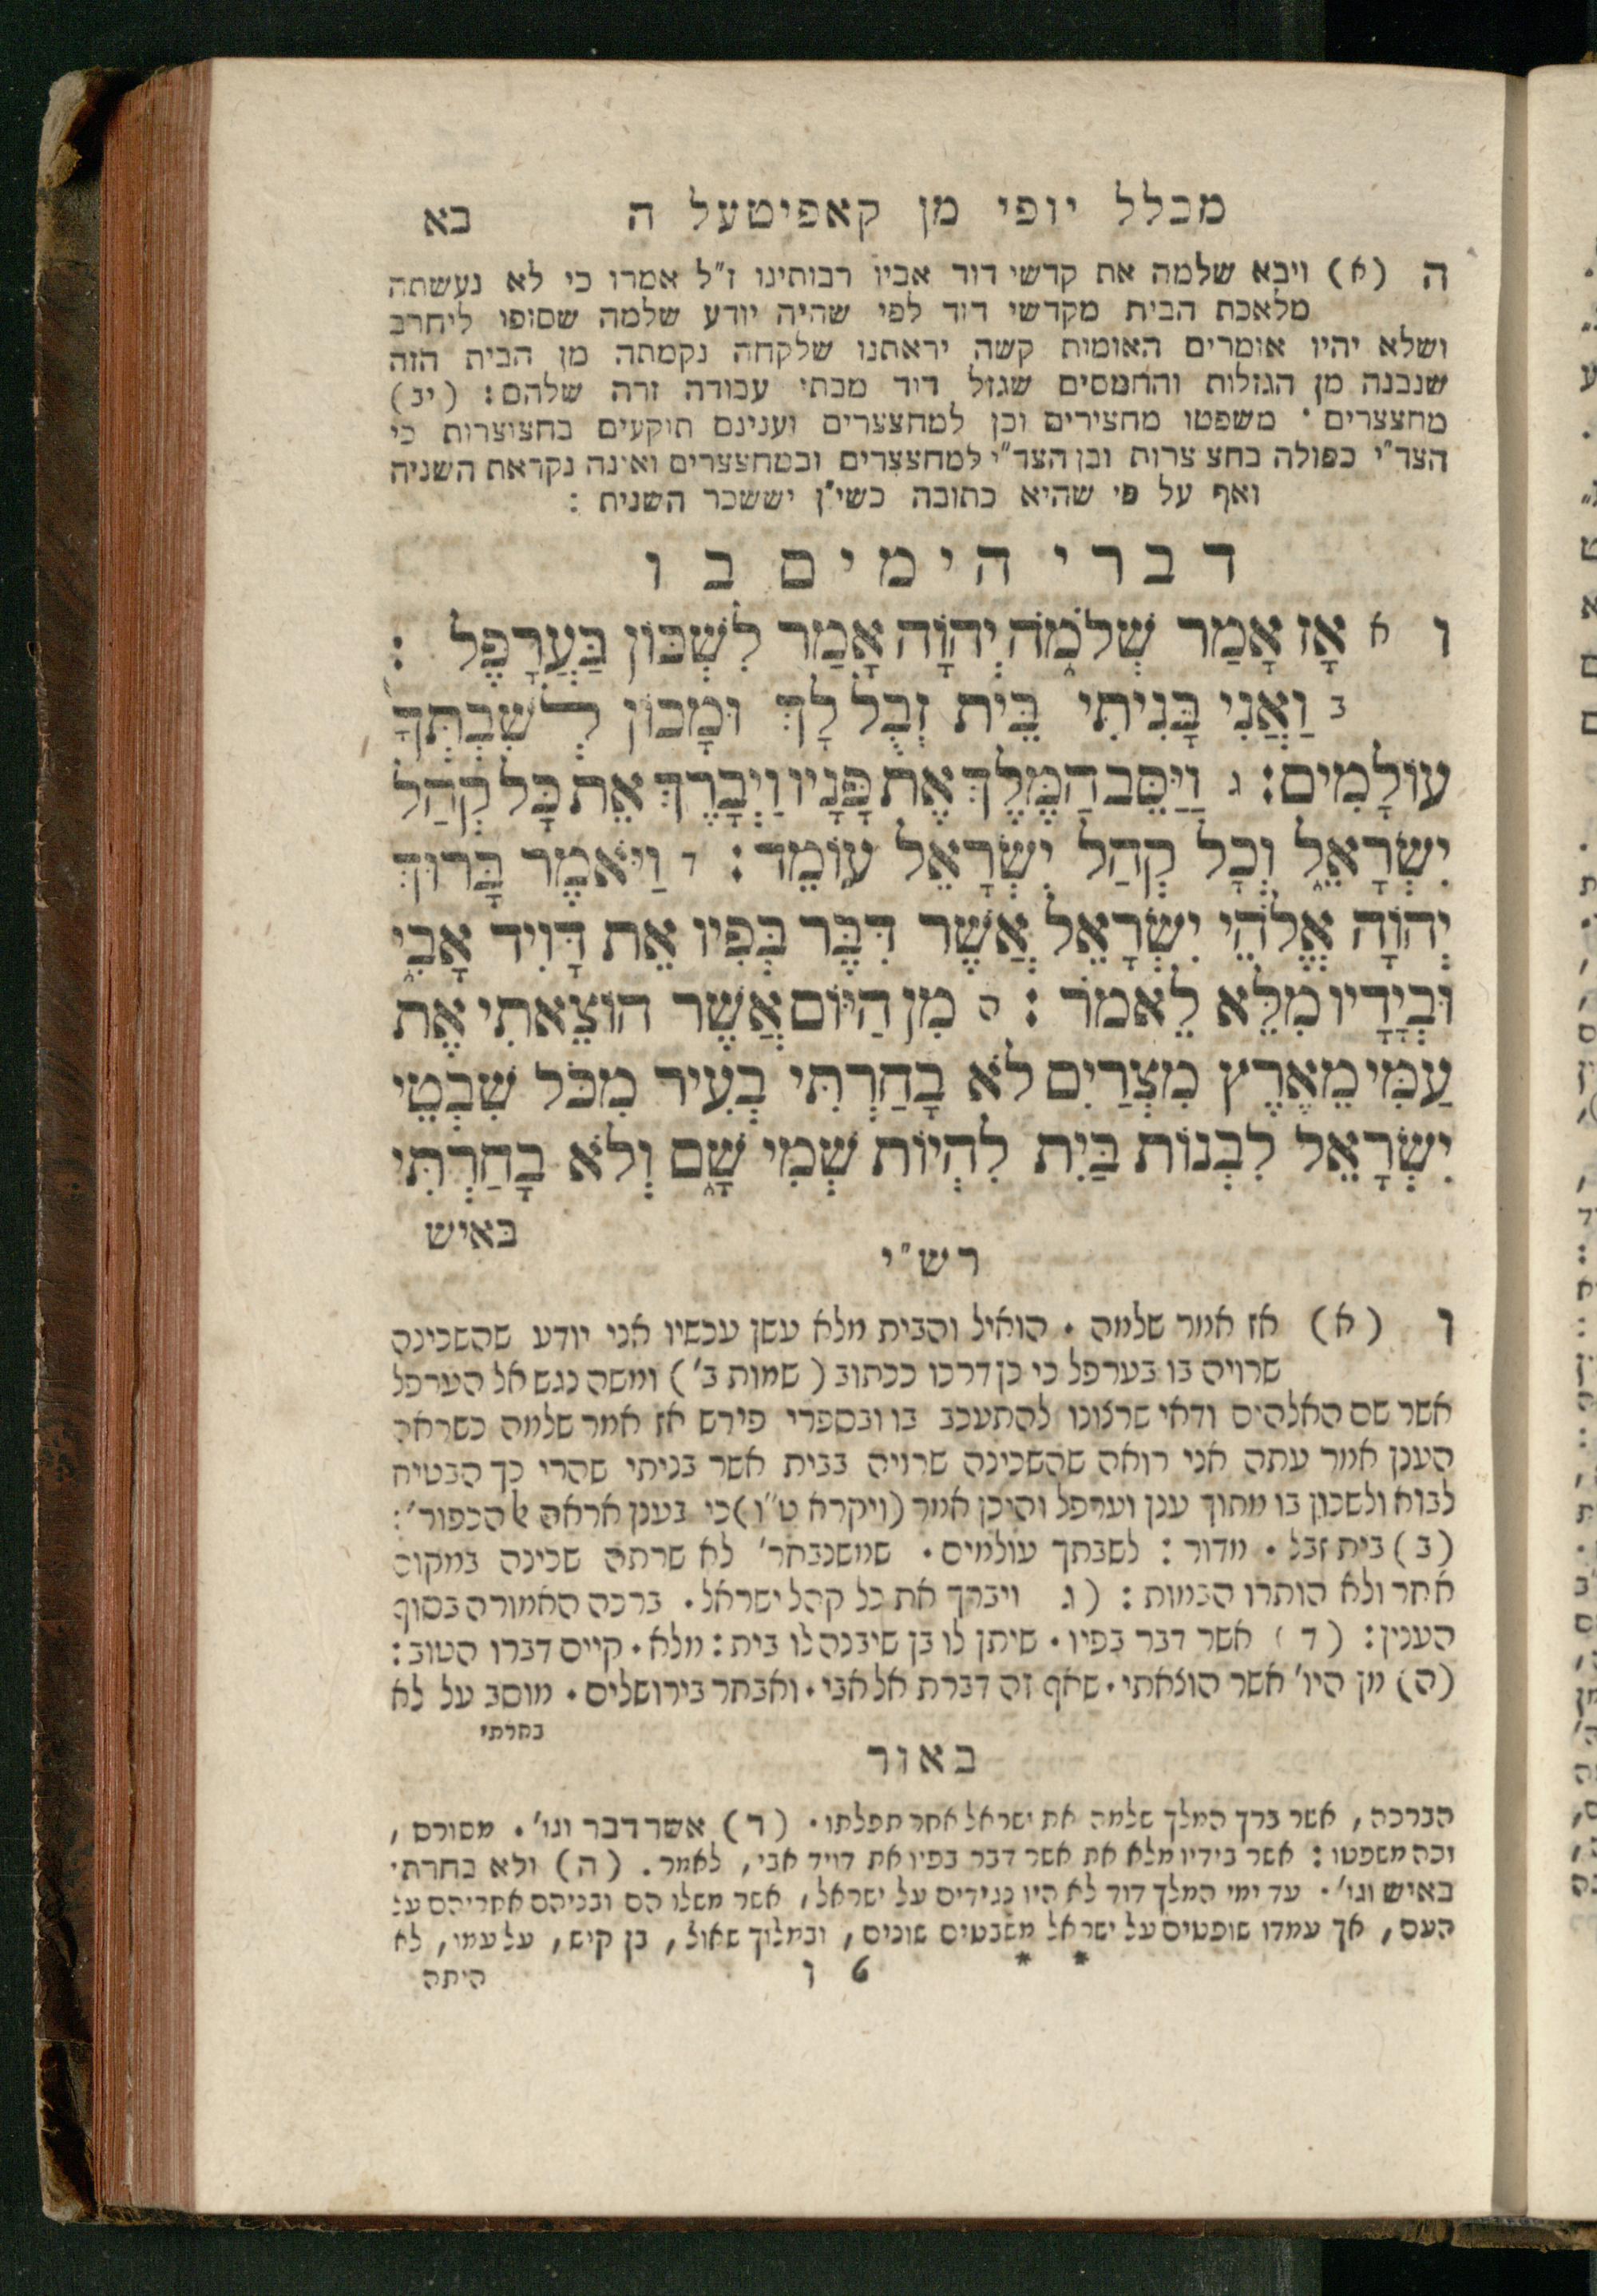 מכלל יופי מן קאפיטעל ה כא
ה (א) ויבא שלמה את קדשי דוד אביו רבותינו ז"ל אמרו כי לא נעשתה
מלאכת הבית מקדשי דוד לפי שהיה יודע שלמה שסופו ליחרב
ושלא יהיו אומרים האומות קשה יראתנו שלקחה נקמתה מן הבית הזה
שנבנה מן הגזלות והחמסים שגזל דוד מבתי עבודה זרה שלהם : (יב)
מחצצרים · משפטו מחצירים וכן למחצצרים וענינם תוקעים בחצוצרות כי
הצד"י כפולה בחצצרות ובן הצד"י למחצצרים ובמחצצרים ואינה נקראת השניה
ואף על פי שהיא כתובה כשי"ן יששכר השנית :
דברי הימים ב ו
ו א אָז אָמַר שְׁלֹמֹה יְהוָֹה אָמַר לִשְׁכּוֹן בַּעֲרָפֶל :
ב וַאֲנִי בָּנִיתִי בֵּית זְבֻל לָךְ וּמָכוֹן לְשִׁבְתְּךָ
עוֹלָמִים : ג וַיַּסֵּב הַמֶּלֶךְ אֶת פָּנָיו וַיְבָרֶךְ אֵת כָּל קְהַל
יִשְׂרָאֵל וְכָל קְהַל יִשְׂרָאֵל עוֹמֵד : ד וַיֹּאמֶר בָּרוּךְ
יְהוָֹה אֱלֹהֵי יִשְׂרָאֵל אֲשֶׁר דִּבֶּר בְּפִיו אֵת דָּוִיד אָבִי
וּבְיָדָיו מִלֵּא לֵאמֹר : ה מִן הַיּוֹם אֲשֶׁר הוֹצֵאתִי אֶת
עַמִּי מֵאֶרֶץ מִצְרַיִם לֹא בָחַרְתִּי בְעִיר מִכֹּל שִׁבְטֵי
יִשְׂרָאֵל לִבְנוֹת בַּיִת לִהְיוֹת שְׁמִי שָׁם וְלֹא בָחַרְתִּי
באיש
רש"י
ו (א) אז אמר שלמה · הואיל והבית מלא עשן עכשיו אני יודע שהשכינה
שרויה בו בערפל כי כן דרכו ככתוב (שמות כ') ומשה נגש אל הערפל
אשר שם האלהים ודאי שרצונו להתעכב בו ובספרי פירש אז אמר שלמה כשראה
הענן אמר עתה אני רואה שהשכינה שרויה בבית אשר בניתי שהרי כך הבטיח
לבוא ולשכון בו מתוך ענן וערפל והיכן אמר (ויקרא ט"ו) כי בענן אראה על הכפור' :
(ב) בית זבל · מדור : לשבתך עולמים · שמשנבחר' לא שרתה שכינה במקום
אחר ולא הותרו הבמות : (ג ויברך את כל קהל ישראל · ברכה האמורה בסוף
הענין : (ד) אשר דבר בפיו · שיתן לו בן שיבנה לו בית : מלא · קיים דברו הטוב :
(ה) מן היו' אשר הוצאתי · שאף זה דברת אל אבי · ואבחר בירושלים · מוסב על לא
בחרתי
באור
הברכה, אשר ברך המלך שלמה את ישראל אחר תפלתו · (ד) אשר דבר וגו' · מסורס,
וכה משפטו : אשר בידיו מלא את אשר דבר בפיו את דויד אבי, לאמר. (ה) ולא בחרתי
באיש וגו' · עד ימי המלך דוד לא היו נגידים על ישראל, אשר משלו הם ובניהם אחריהם על
העם, אך עמדו שופטים על ישראל משבטים שונים, ובמלוך שאול, בן קיש, על עמו, לא
* * 6 ו היתה